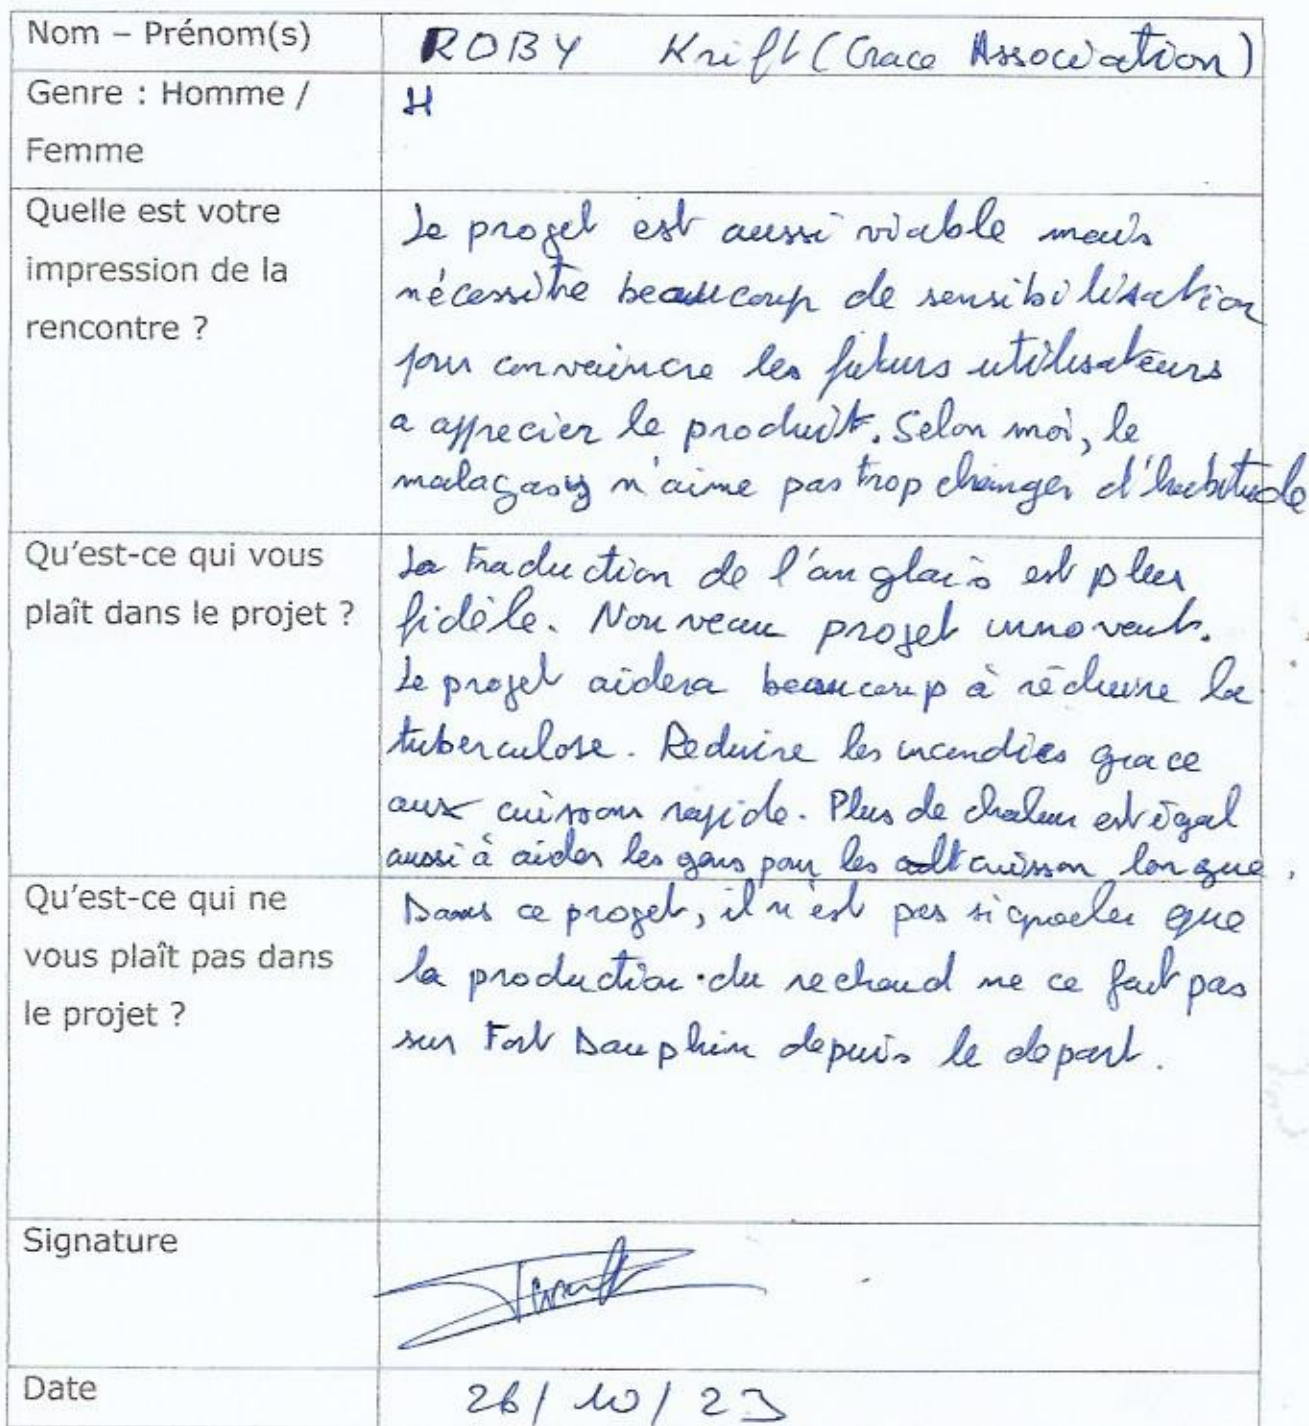 Nom – Prénom(s)
ROBY Krift (Grace Association)
Genre : Homme /
Femme
H
Quelle est votre
impression de la
rencontre ?
Le projet est aussi viable mais
nécessite beaucoup de sensibilisation
pour convaincre les futurs utilisateurs
a apprecier le produit. Selon moi, le
malagasy n'aime pas trop changer d'habitude
Qu'est-ce qui vous
plaît dans le projet ?
La traduction de l'anglais est plus
fidèle. Nouveau projet innovant.
Le projet aidera beaucoup à réduire la
tuberculose. Reduire les incendies grace
aux cuisson rapide. Plus de chaleur est égal
aussi à aider les gens pour les cuisson longue,
Qu'est-ce qui ne
vous plaît pas dans
le projet ?
Dans ce projet, il n'est pas signaler que
la production du rechaud ne ce fait pas
sur Fort Dauphin depuis le depart.
Signature
Date
26/10/23